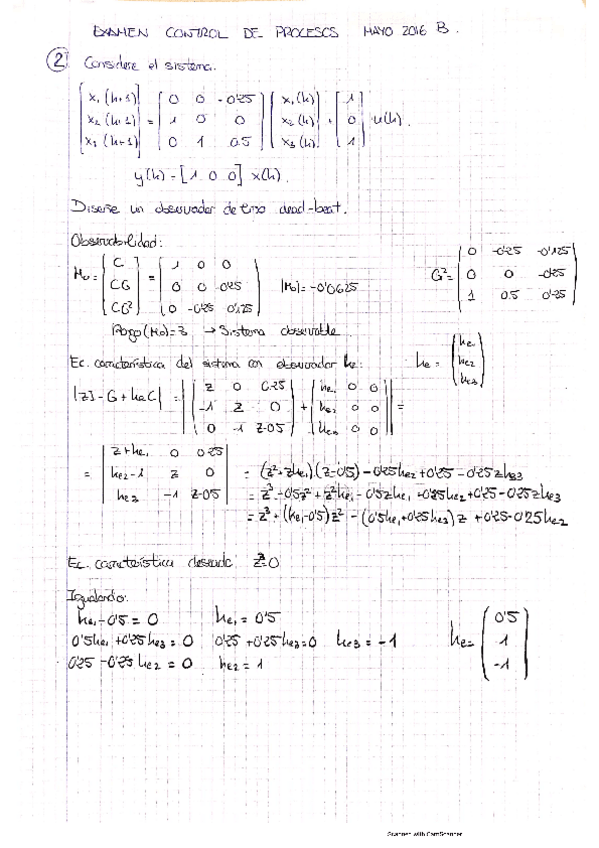 EXAMEN CONTROL DE PROCESOS. MAYO 2016 B.
② Considere el sistema.
[x₁(k+1); x₂(k+1); x₃(k+1)] = [0 0 -0'25; 1 0 0; 0 1 0.5] [x₁(k); x₂(k); x₃(k)] + [1; 0; 1] u(k).
y(k) = [1 0 0] x(k).
Diseñe un observador de tipo dead-beat.
Observabilidad:
Mo = [C; CG; CG²] = [1 0 0; 0 0 0'25; 0 -0'25 0'125] |Mo| = -0'0625 G² = [0 -0'25 -0'125; 0 0 -0'25; 1 0.5 0'25]
Rango(Mo) = 3 → Sistema observable
Ec. característica del sistema con observador ke: ke = [ke₁; ke₂; ke₃]
|zI - G + keC| = |[z 0 0.25; -1 z 0; 0 -1 z-0.5] + [ke₁ 0 0; ke₂ 0 0; ke₃ 0 0]| =
= |z+ke₁ 0 0'25; ke₂-1 z 0; ke₃ -1 z-0.5| = (z²+zke₁)(z-0'5) - 0.25ke₂ + 0'25 - 0'25zke₃
= z³ - 0'5z² + z²ke₁ - 0'5zke₁ + 0'25ke₂ + 0'25 - 0'25zke₃
= z³ + (ke₁-0'5)z² - (0'5ke₁+0'25ke₃)z + 0'25-0'25ke₂
Ec. característica deseada: z³=0
Igualando:
ke₁-0'5 = 0 ke₁ = 0'5
0'5ke₁+0'25ke₃ = 0 0'25+0'25ke₃=0 ke₃ = -1 ke = [0'5; 1; -1]
0'25-0'25ke₂ = 0 ke₂ = 1
Scanned with CamScanner